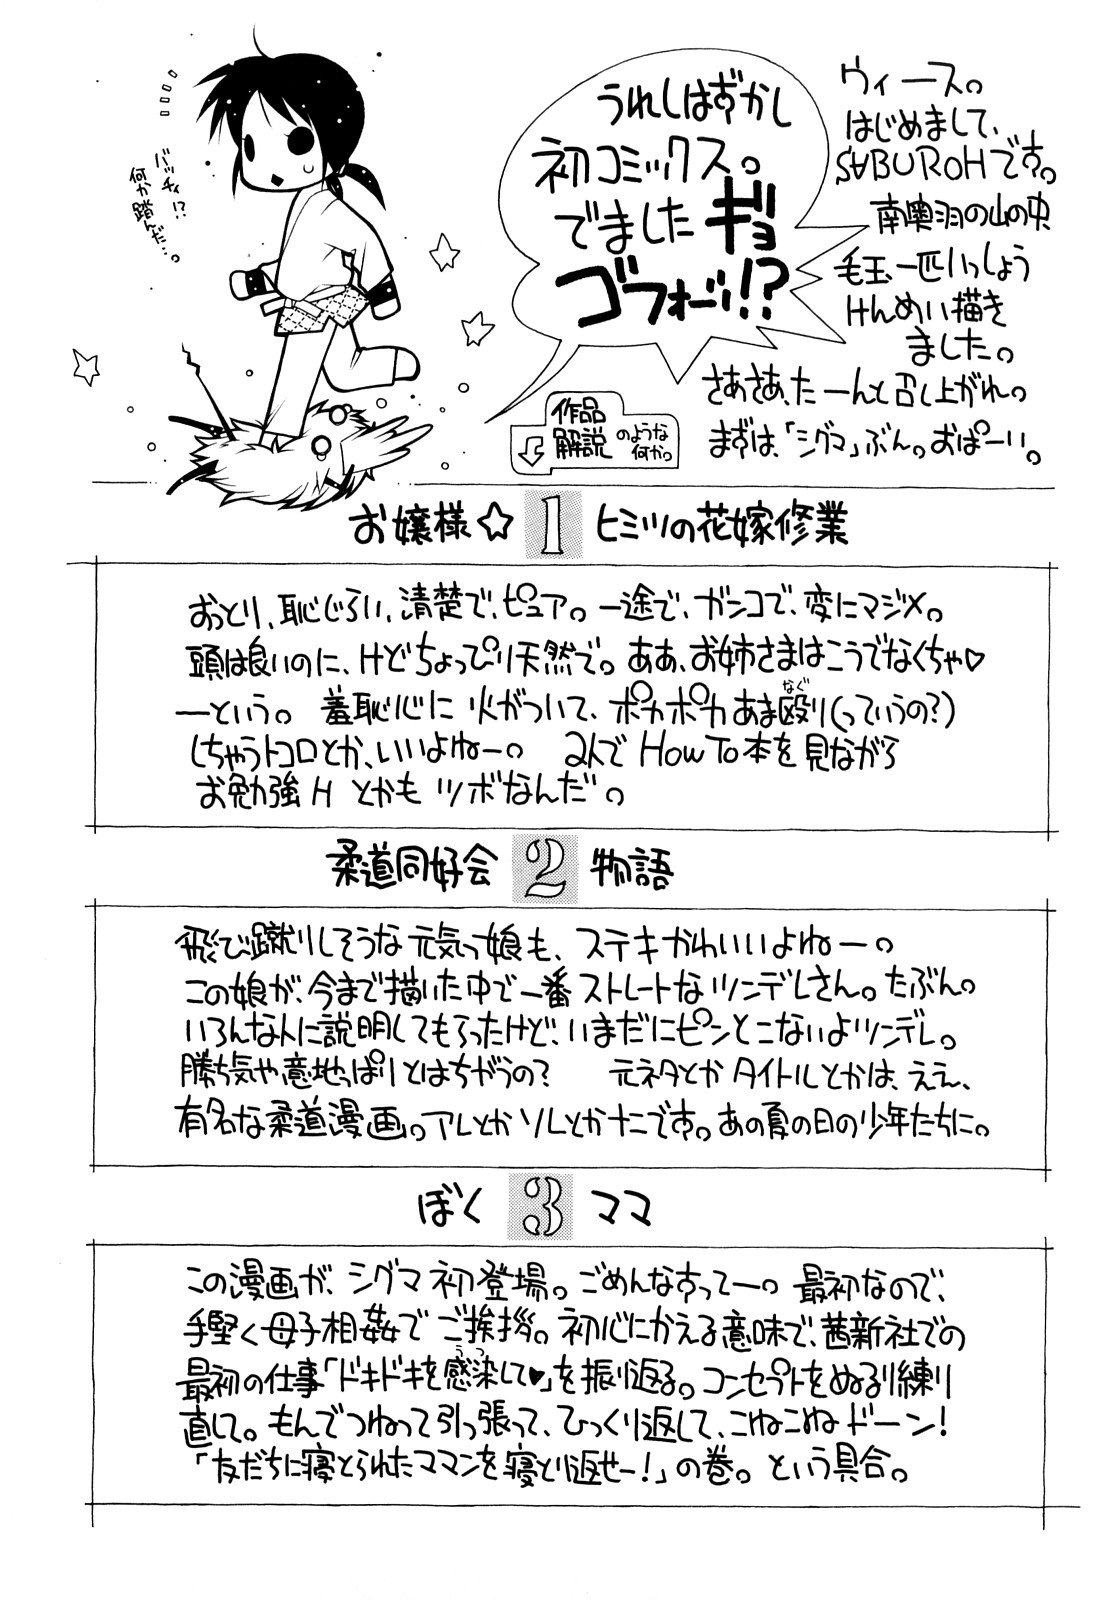 ウィース。
はじめまして、
SABUROHです。
南奥羽の山の中
毛玉一匹いっしょう
けんめい描き
ました。
さあさあ、たーんと召し上がれ。
まずは、「シグマ」ぶん。おぱーい。
うれしはずかし
初コミックス。
でましたギョ
ゴフォーッ!?
バッチィ!?
何か踏んだ…。
作品
解説
のような
何か。
お嬢様☆1ヒミツの花嫁修業
おっとり、恥じらい、清楚で、ピュア。一途で、ガンコで、変にマジメ。
頭は良いのに、けどちょっぴり天然で。ああ、お姉さまはこうでなくちゃ♡
―という。 羞恥心に火がついて、ポカポカあま殴り(っていうの?)
なぐ
しちゃうトコロとか、いいよねー。 2人でHow To本を見ながら
お勉強H とかも ツボなんだ。
柔道同好会2物語
飛び蹴りしそうな元気っ娘も、ステキかわいいよねー。
この娘が、今まで描いた中で一番ストレートなツンデレさん。たぶん。
いろんな人に説明してもらったけど、いまだにピンとこないよツンデレ。
勝ち気や意地っぱりとはちがうの? 元ネタとかタイトルとかは、ええ、
有名な柔道漫画。アレとかソレとかナニです。あの夏の日の少年たちに。
ぼく3ママ
この漫画が、シグマ初登場。ごめんなすってー。最初なので、
手堅く母子相姦でご挨拶。初心にかえる意味で、茜新社での
最初の仕事「ドキドキを感染して♥」を振り返る。コンセプトをぬるり練り
うつ
直して。もんでつねって引っ張って、ひっくり返して、こねこねドーン!
「友だちに寝とられたママンを寝とり返せー!」の巻。という具合。